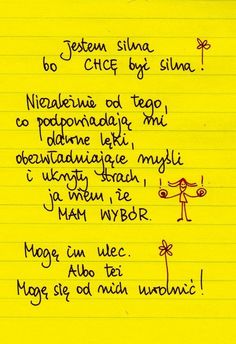 jestem silna
bo CHCĘ być silna!
Niezależnie od tego,
co podpowiadają mi
dawne lęki,
obezwładniające myśli
i ukryty strach,
ja wiem, że
MAM WYBÓR.
Mogę im ulec.
Albo też
Mogę się od nich uwolnić!